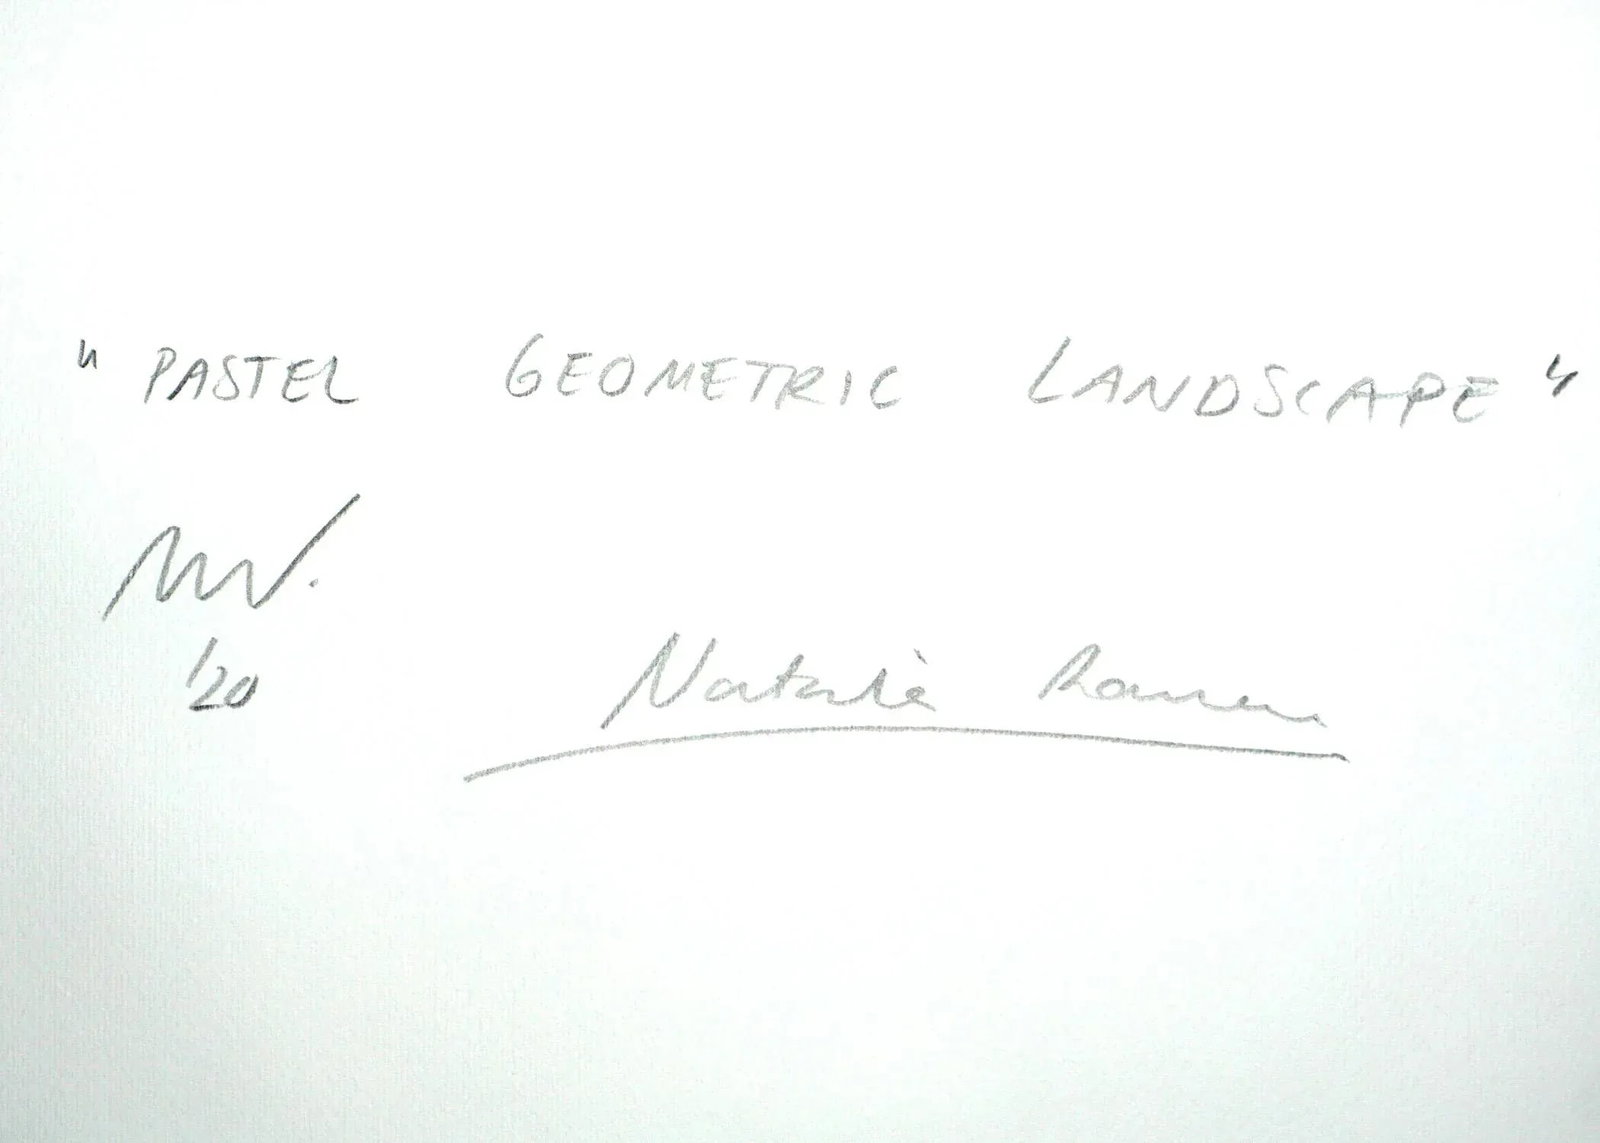 "PASTEL GEOMETRIC LANDSCAPE"
/20
Natalie